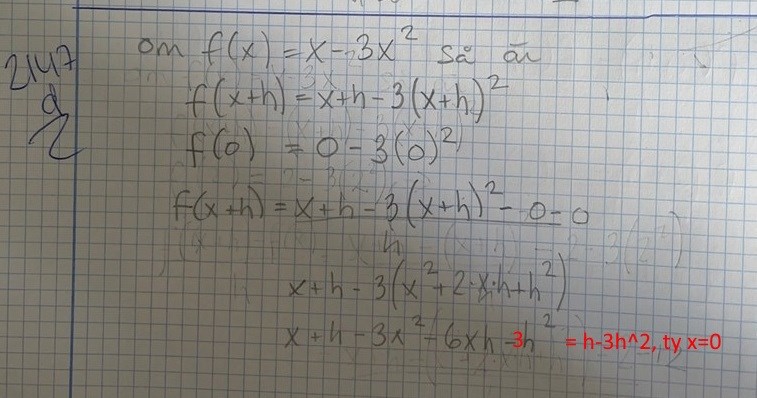 2147
d
om f(x) = x - 3x² så är
f(x+h) = x+h - 3(x+h)²
f(0) = 0 - 3(0)²
f(x+h) = x+h - 3(x+h)² - 0 - 0
h
x+h - 3(x²+2·x·h+h²)
x+h - 3x² - 6xh -3h² = h-3h^2, ty x=0